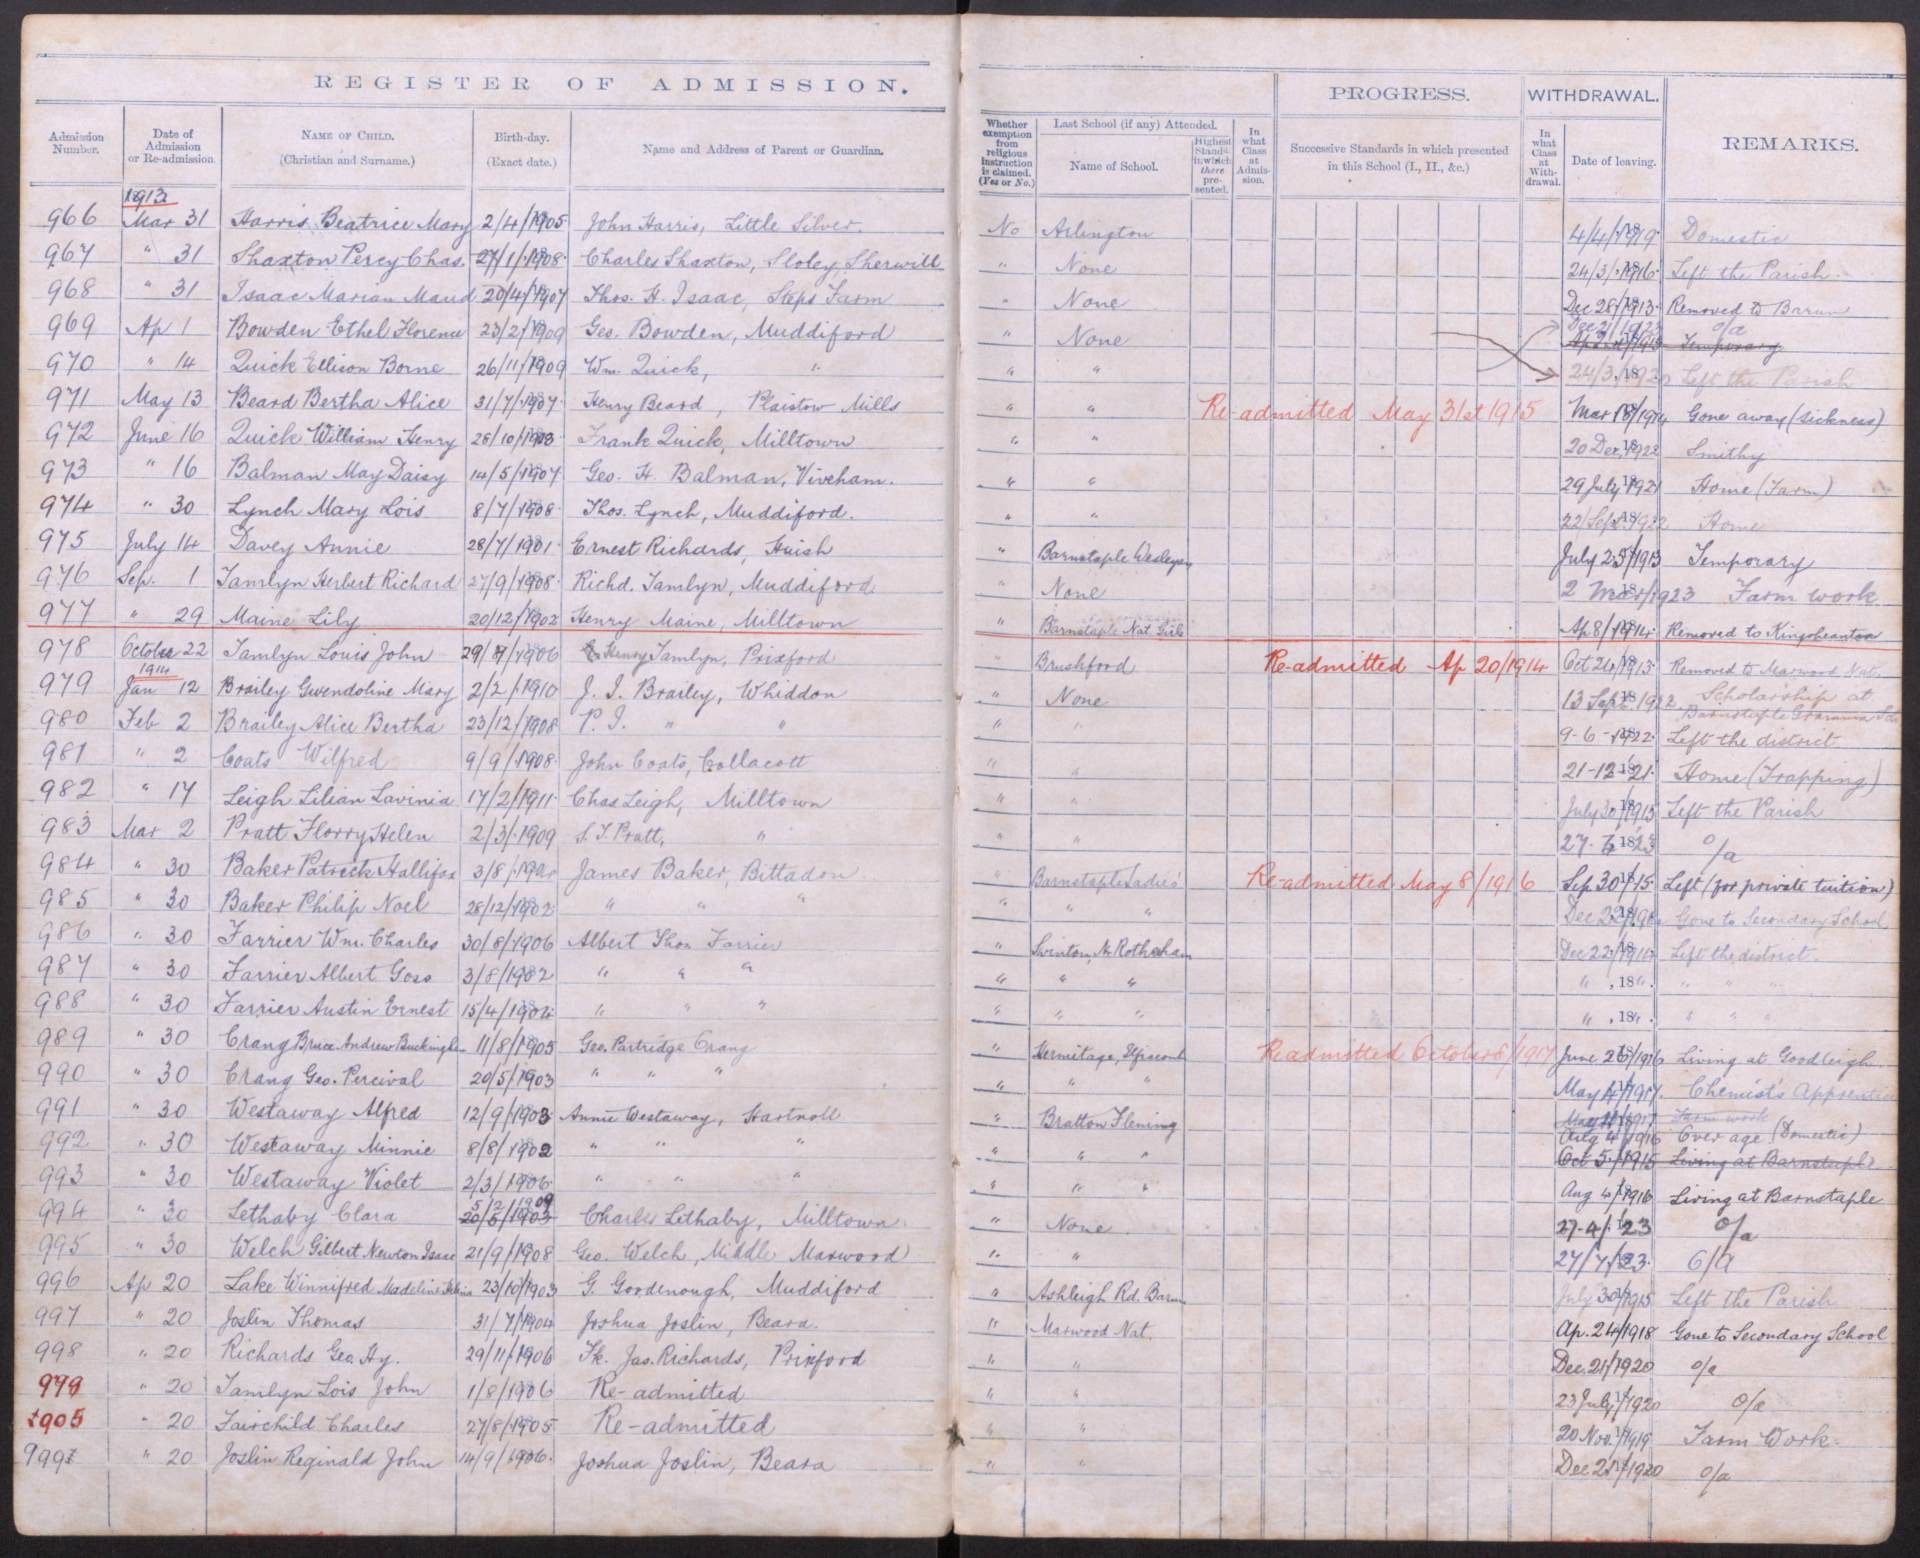 REGISTER OF ADMISSION.
Admission Number.
Date of Admission or Re-admission
NAME OF CHILD. (Christian and Surname.)
Birth-day. (Exact date.)
Name and Address of Parent or Guardian.
Whether exemption from religious instruction is claimed. (Yes or No.)
Last School (if any) Attended.
Name of School.
Highest Stand'd in which there presented.
In what Class at Admission.
PROGRESS.
Successive Standards in which presented in this School (I., II., &c.)
WITHDRAWAL.
In what Class at Withdrawal.
Date of leaving.
REMARKS.
1913
966 Mar 31 Harris Beatrice Mary 2/4/1905 John Harris, Little Silver. No Arlington 4/4/1919 Domestic
967 " 31 Shaxton Percy Chas. 27/1/1908 Charles Shaxton, Sloley, Sherwill " None 24/3/1916 Left the Parish
968 " 31 Isaac Marian Maud 20/4/1907 Thos. H. Isaac, Steps Farm " None Dec 28/1913 Removed to Barum
969 Ap 1 Bowden Ethel Florence 23/2/1909 Geo. Bowden, Muddiford " None Dec 21/1923 o/a
Temporary
970 " 14 Quick Ellison Borne 26/11/1909 Wm. Quick, " " " 24/3/1920 Left the Parish
971 May 13 Beard Bertha Alice 31/7/1907 Henry Beard, Plaistow Mills " " Re-admitted May 31st 1915 Mar 18/1914 Gone away (sickness)
972 June 16 Quick William Henry 28/10/1903 Frank Quick, Milltown " " 20 Dec. 1922 Smithy
973 " 16 Balman May Daisy 14/5/1907 Geo. H. Balman, Viveham. " " 29 July 1921 Home (Farm)
974 " 30 Lynch Mary Lois 8/7/1908 Thos. Lynch, Muddiford. " " 22/Sep 1922 Home
975 July 14 Davey Annie 28/7/1901 Ernest Richards, Huish " Barnstaple Wesleyan July 25/1913 Temporary
976 Sep. 1 Tamlyn Herbert Richard 27/9/1908 Richd. Tamlyn, Muddiford " None 2 Mar/1923 Farm work
977 " 29 Maine Lily 20/12/1902 Henry Maine, Milltown " Barnstaple Nat. Girls Ap 8/1914 Removed to Kingsheanton
978 October 22 Tamlyn Louis John 29/8/1906 Henry Tamlyn, Prixford " Brushford Re-admitted Ap 20/1914 Oct 24/1913 Removed to Marwood Nat.
1914
979 Jan 12 Brailey Gwendoline Mary 2/2/1910 J. I. Brailey, Whiddon " None 13 Sept 1922 Scholarship at
Barnstaple Grammar Sch
980 Feb 2 Brailey Alice Bertha 23/12/1908 P. I. " " " " 9-6-1922 Left the district
981 " 2 Coats Wilfred 9/9/1908 John Coats, Collacott " " 21-12-21 Home (Trapping)
982 " 17 Leigh Lilian Lavinia 17/2/1911 Chas Leigh, Milltown " " July 30/1915 Left the Parish
983 Mar 2 Pratt Florry Helen 2/3/1909 S. T. Pratt, " " " 27. 7. 23 o/a
984 " 30 Baker Patrick Hallifax 3/8/ James Baker, Bittadon " Barnstaple Ladies' Re-admitted May 8/1916 Sep 30/15 Left (for private tuition)
985 " 30 Baker Philip Noel 28/12/1902 " " " " " " Dec 22/ Gone to Secondary School
986 " 30 Farrier Wm. Charles 30/8/1906 Albert Thos Farrier " Swinton, Nr Rotherham Dec 22/ Left the district.
987 " 30 Farrier Albert Goss 3/8/1902 " " " " " " " "
988 " 30 Farrier Austin Ernest 15/4/1904 " " " " " " " "
989 " 30 Crang Bruce Andrew Buckingham 11/8/1905 Geo. Partridge Crang " Hermitage, Ilfracomb Readmitted October 8/1917 June 26/1916 Living at Goodleigh
990 " 30 Crang Geo. Percival 20/5/1903 " " " " " " May 4/1917. Chemist's Apprentice
991 " 30 Westaway Alfred 12/9/1903 Annie Westaway, Hartnoll " Bratton Fleming May 11/1917 Farm work
992 " 30 Westaway Minnie 8/8/1902 " " " " " " Aug 4/1916 Over age (Domestic)
Oct 5/1915 Living at Barnstaple
993 " 30 Westaway Violet 2/3/1906 " " " " " " Aug 4/1916 Living at Barnstaple
5/2/1909
994 " 30 Lethaby Clara 20/5/1903 Charles Lethaby, Milltown " None 27-4-23 o/a
995 " 30 Welch Gilbert Newton Isaac 21/9/1908 Geo. Welch, Middle Marwood " " 27/7/23. O/A
996 Ap 20 Lake Winnifred Madeline 23/10/1903 G. Goodenough, Muddiford " Ashleigh Rd. Barum July 30/1915 Left the Parish
997 " 20 Joslin Thomas 31/7/1904 Joshua Joslin, Beara. " Marwood Nat. Ap. 24/1918 Gone to Secondary School
998 " 20 Richards Geo. Hy. 29/11/1906 Fk. Jas. Richards, Prixford " " Dec. 21/1920 o/a
979 " 20 Tamlyn Lois John 1/8/1906 Re-admitted " " 23 July/1920 o/a
905 " 20 Fairchild Charles 27/8/1905 Re-admitted " " 20 Nov. 1919 Farm Work.
999 " 20 Joslin Reginald John 14/9/1906. Joshua Joslin, Beara " " Dec 21/1920 o/a